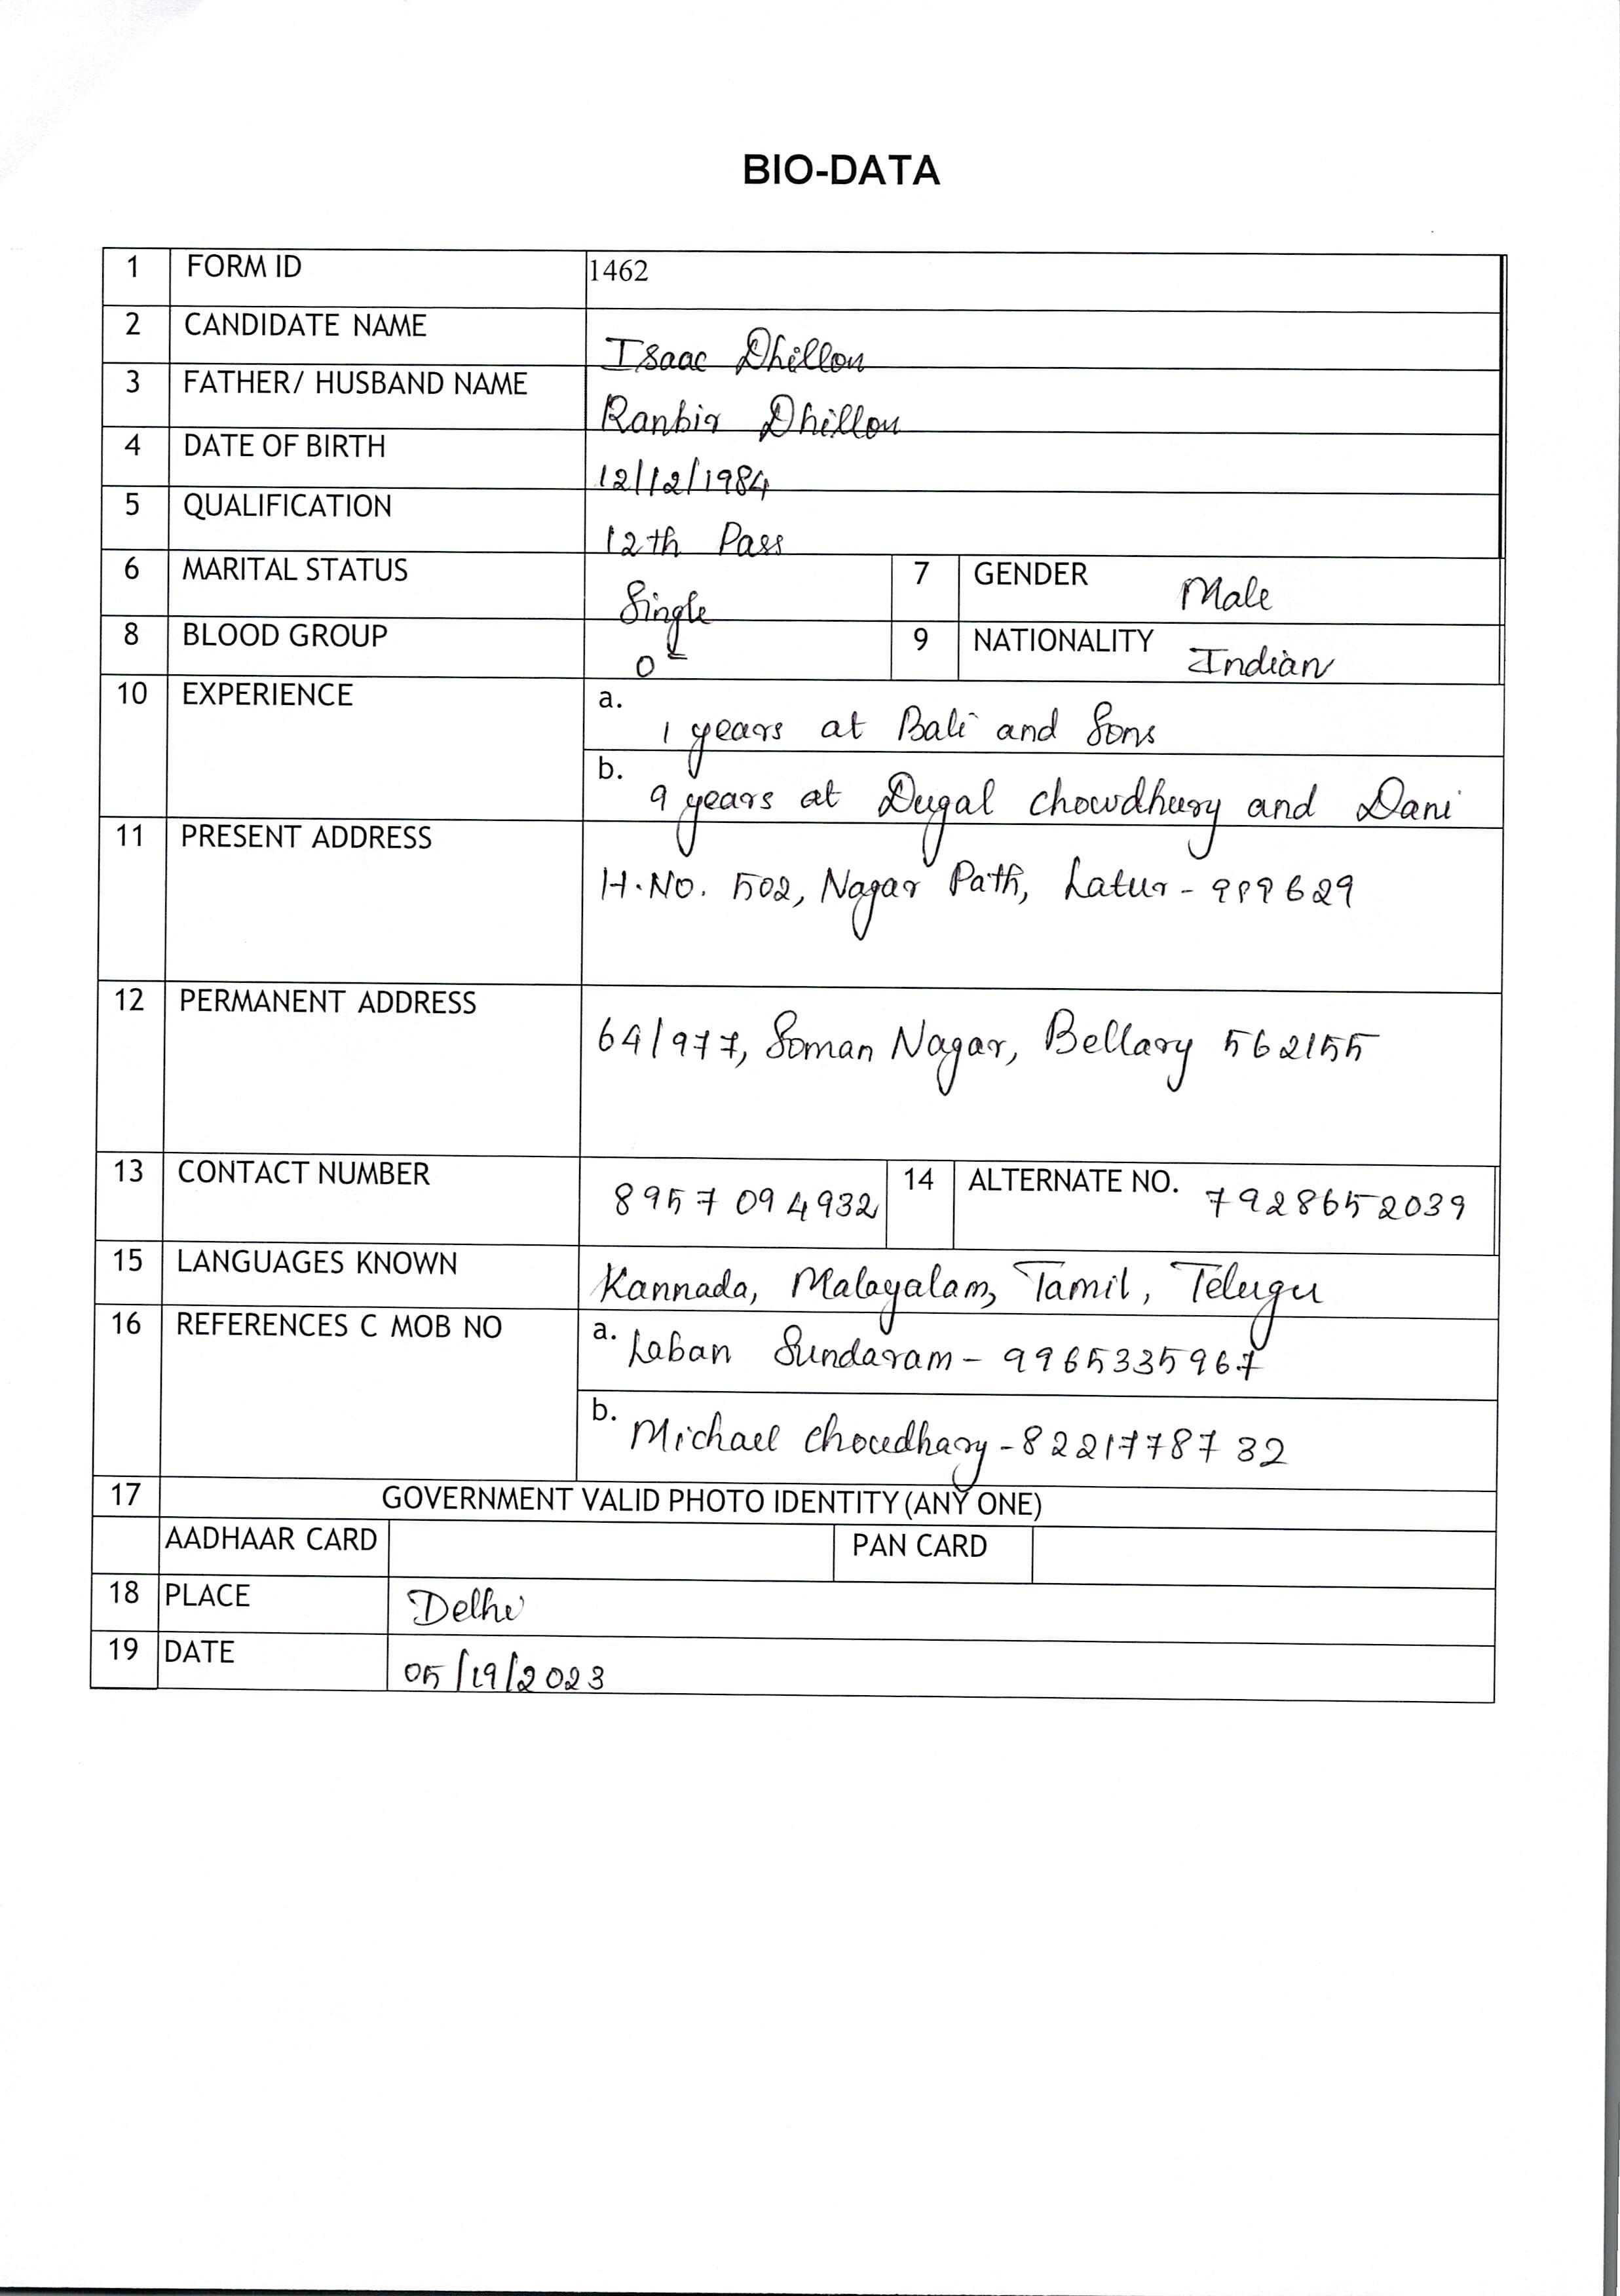 BIO-DATA
1 FORM ID 1462
2 CANDIDATE NAME Isaac Dhillon
3 FATHER/ HUSBAND NAME Ranbir Dhillon
4 DATE OF BIRTH 12/12/1984
5 QUALIFICATION 12th Pass
6 MARITAL STATUS Single 7 GENDER Male
8 BLOOD GROUP O- 9 NATIONALITY Indian
10 EXPERIENCE a. 1 years at Bali and Sons
b. 9 years at Dugal chowdhury and Dani
11 PRESENT ADDRESS H.No. 502, Nagar Path, Latur - 989629
12 PERMANENT ADDRESS 64/977, Soman Nagar, Bellary 562155
13 CONTACT NUMBER 8957094932 14 ALTERNATE NO. 7928652039
15 LANGUAGES KNOWN Kannada, Malayalam, Tamil, Telugu
16 REFERENCES C MOB NO a. Laban Sundaram - 9965335967
b. Michael choudhary - 8221778732
17 GOVERNMENT VALID PHOTO IDENTITY (ANY ONE)
AADHAAR CARD PAN CARD
18 PLACE Delhi
19 DATE 05/19/2023